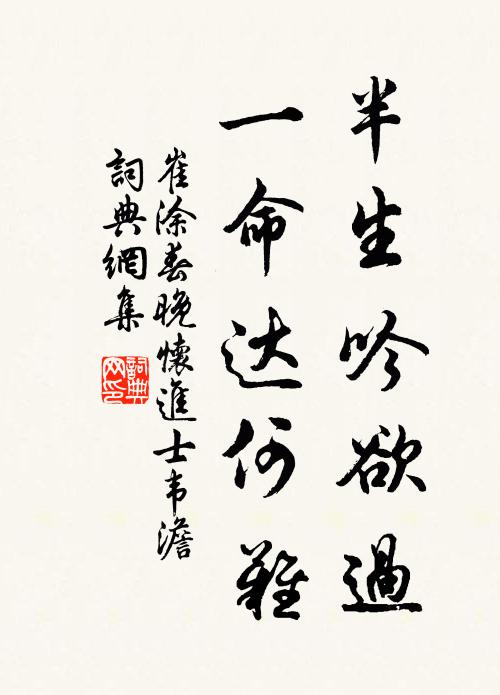 半生吟欲過
一命达何難
崔涂春晚懷進士韦澹
詞典網集
詞典
网印